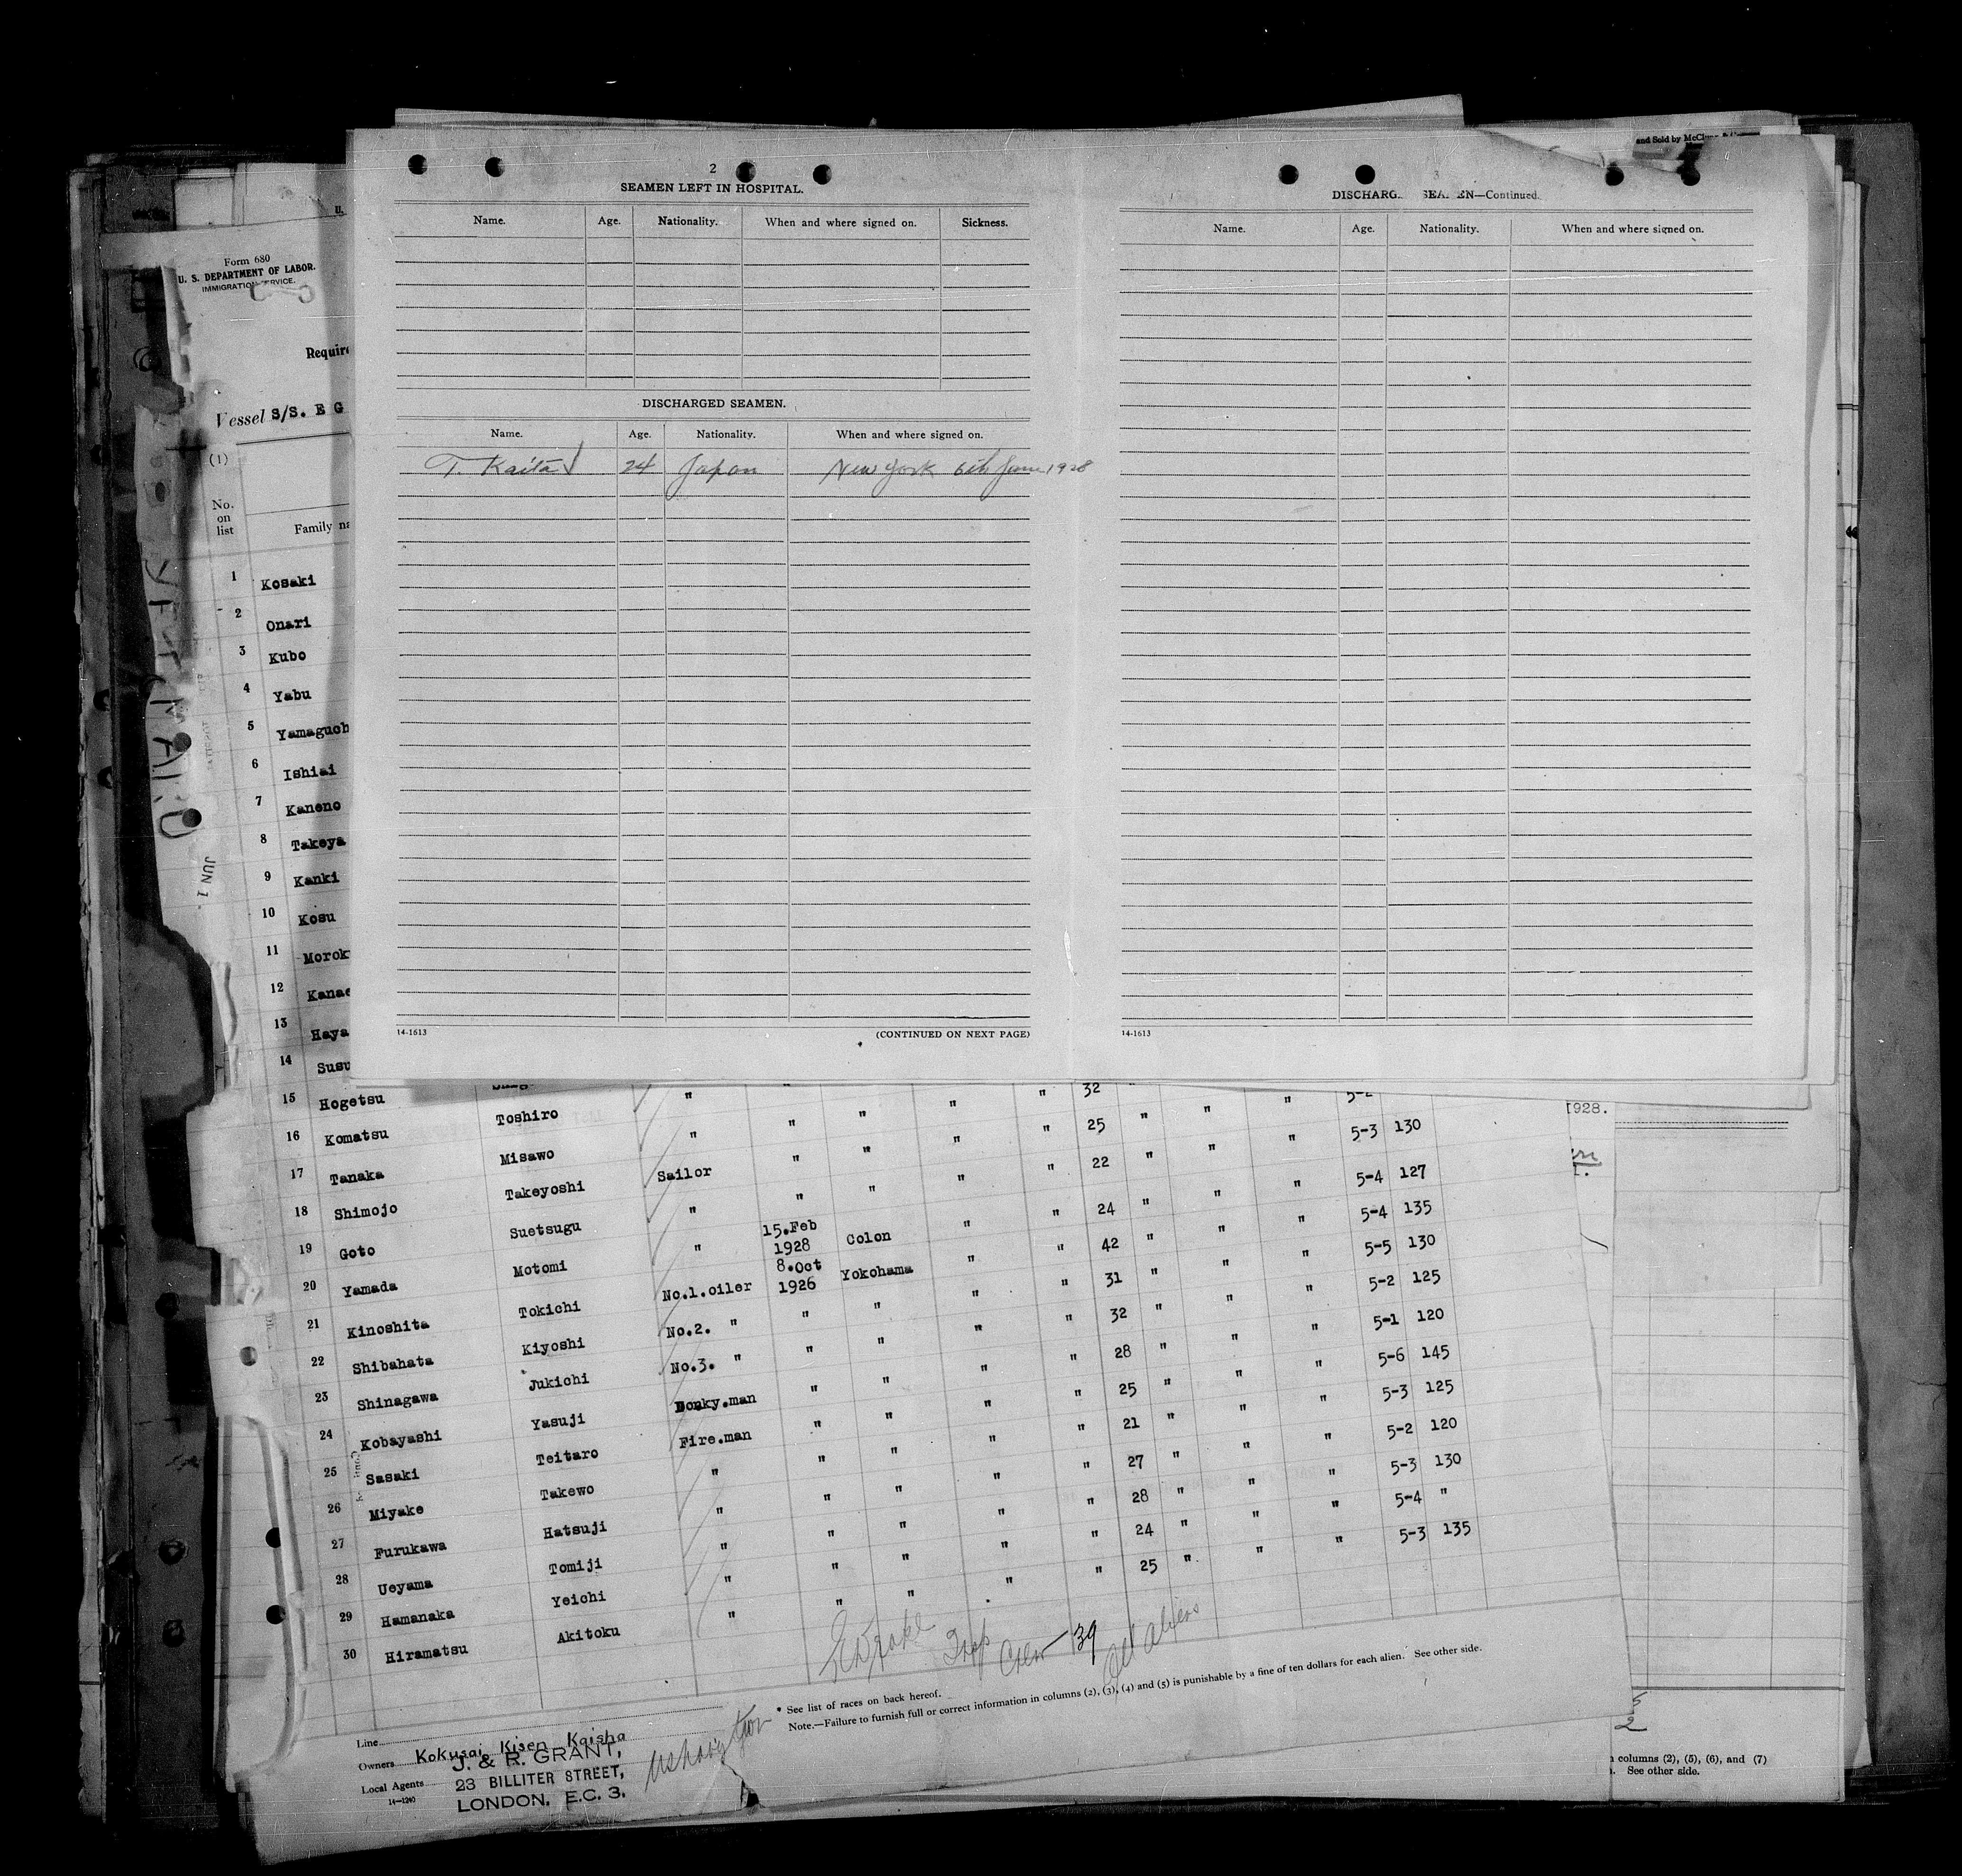 and Sold by McClu
2
SEAMEN LEFT IN HOSPITAL.
Name. Age. Nationality. When and where signed on. Sickness.
DISCHARGED SEAMEN.
Name. Age. Nationality. When and where signed on.
T. Kaita 24 Japan New York 6th June 1928
14-1613 (CONTINUED ON NEXT PAGE)
3
DISCHARG SEA EN—Continued.
Name. Age. Nationality. When and where signed on.
14-1613
Form 680
U. S. DEPARTMENT OF LABOR.
IMMIGRATION SERVICE.
Require
Vessel S/S. E G
(1)
No. on list
Family na
1 Kosaki
2 Onari
3 Kubo
4 Yabu
5 Yamaguch
6 Ishiai
7 Kaneno
8 Takeya
9 Kanki
10 Kosu
11 Morok
12 Kanae
13 Haya
14 Susu
15 Hogetsu
16 Komatsu Toshiro " " " " " 25 " " " 5-3 130
17 Tanaka Misawo " " " " " 22 " " " 5-4 127
18 Shimojo Takeyoshi Sailor " " " " 24 " " " 5-4 135
19 Goto Suetsugu " 15.Feb 1928 Colon " " 42 " " " 5-5 130
20 Yamada Motomi " 8.Oct 1926 Yokohama " " 31 " " " 5-2 125
21 Kinoshita Tokichi No.1.oiler " " " " 32 " " " 5-1 120
22 Shibahata Kiyoshi No.2. " " " " " 28 " " " 5-6 145
23 Shinagawa Jukichi No.3. " " " " " 25 " " " 5-3 125
24 Kobayashi Yasuji Donky.man " " " " 21 " " " 5-2 120
25 Sasaki Teitaro Fire.man " " " " 27 " " " 5-3 130
26 Miyake Takewo " " " " " 28 " " " 5-4 "
27 Furukawa Hatsuji " " " " " 24 " " " 5-3 135
28 Ueyama Tomiji " " " " " 25 "
29 Hamanaka Yeichi "
30 Hiramatsu Akitoku "
Crew 39
All aliens
* See list of races on back hereof.
Note.—Failure to furnish full or correct information in columns (2), (3), (4) and (5) is punishable by a fine of ten dollars for each alien. See other side.
Line
Owners Kokusai Kisen Kaisha
Local Agents J. & R. GRANT,
23 BILLITER STREET,
LONDON, E.C. 3.
14-1240
JUN 1
MARU
1928.
columns (2), (5), (6), and (7)
See other side.